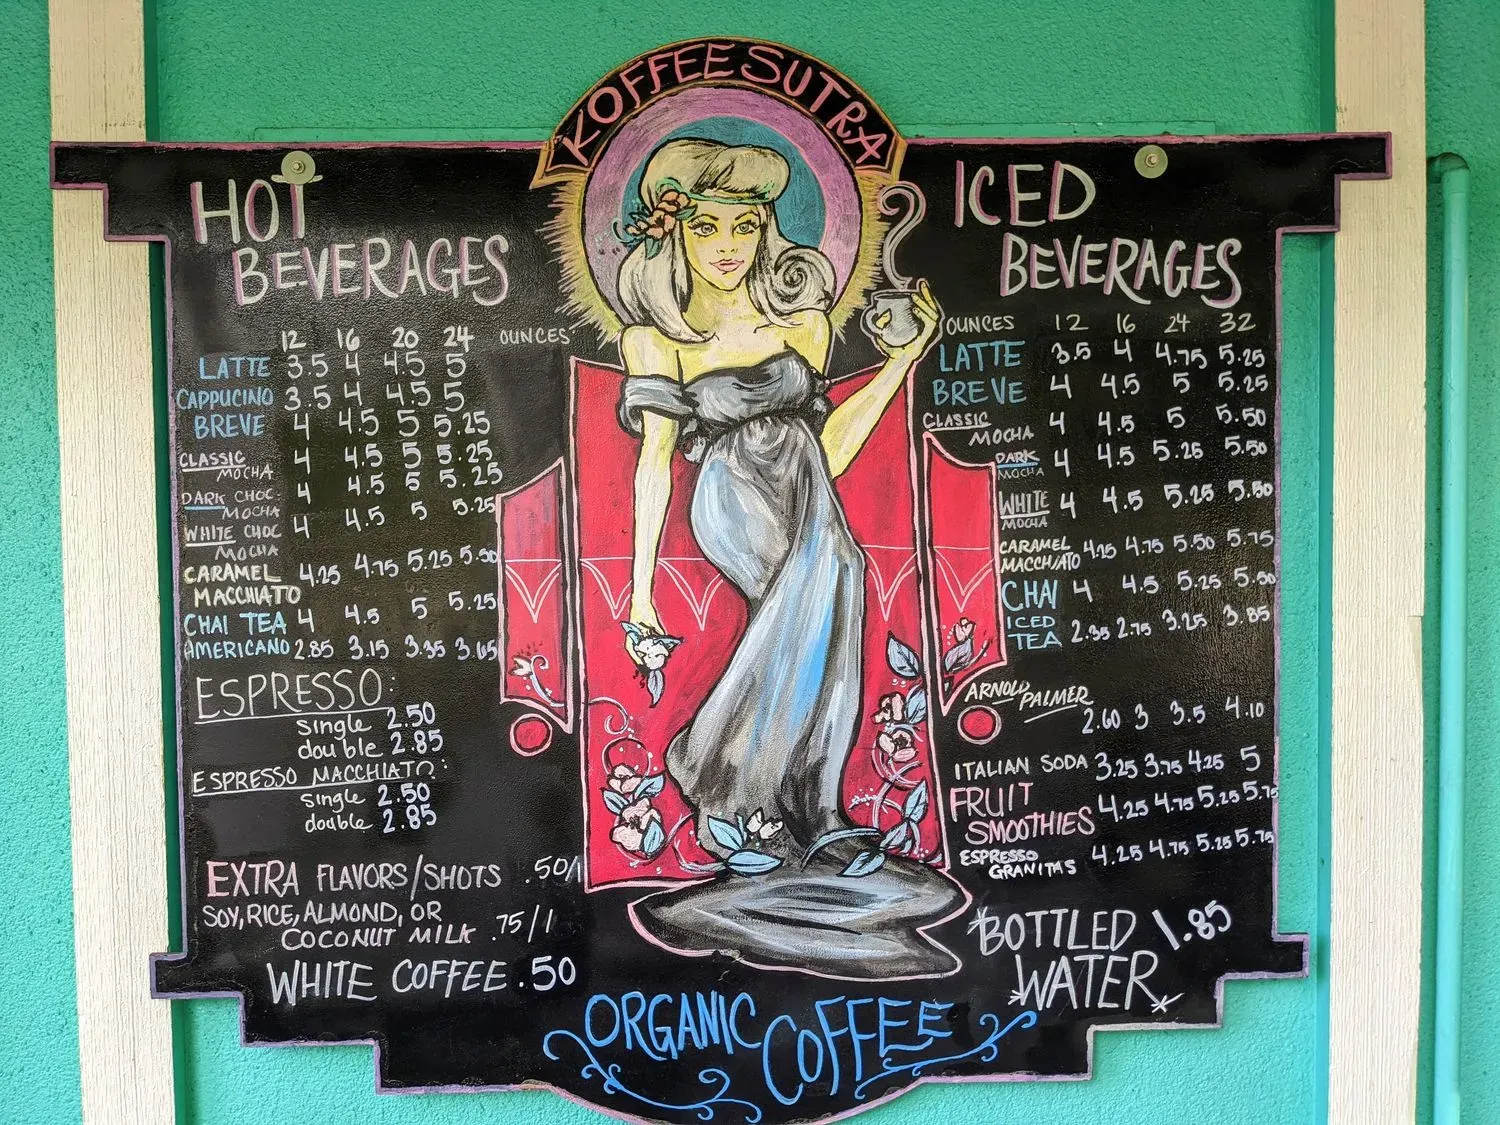 KOFFEE SUTRA
HOT
BEVERAGES
12 16 20 24 OUNCES
LATTE 3.5 4 4.5 5
CAPPUCINO 3.5 4 4.5 5
BREVE 4 4.5 5 5.25
CLASSIC
MOCHA 4 4.5 5 5.25
DARK CHOC.
MOCHA 4 4.5 5 5.25
WHITE CHOC
MOCHA 4 4.5 5 5.25
CARAMEL
MACCHIATO 4.25 4.75 5.25 5.50
CHAI TEA 4 4.5 5 5.25
AMERICANO 2.85 3.15 3.35 3.65
ESPRESSO:
single 2.50
double 2.85
ESPRESSO MACCHIATO:
single 2.50
double 2.85
EXTRA FLAVORS/SHOTS .50/1
SOY, RICE, ALMOND, OR
COCONUT MILK .75/1
WHITE COFFEE .50
ICED
BEVERAGES
OUNCES 12 16 24 32
LATTE 3.5 4 4.75 5.25
BREVE 4 4.5 5 5.25
CLASSIC
MOCHA 4 4.5 5 5.50
DARK
MOCHA 4 4.5 5.25 5.50
WHITE
MOCHA 4 4.5 5.25 5.50
CARAMEL
MACCHIATO 4.25 4.75 5.50 5.75
CHAI 4 4.5 5.25 5.50
ICED
TEA 2.35 2.75 3.25 3.85
ARNOLD
PALMER
2.60 3 3.5 4.10
ITALIAN SODA 3.25 3.75 4.25 5
FRUIT
SMOOTHIES 4.25 4.75 5.25 5.75
ESPRESSO
GRANITAS 4.25 4.75 5.25 5.75
*BOTTLED 1.85
*WATER*
ORGANIC COFFEE